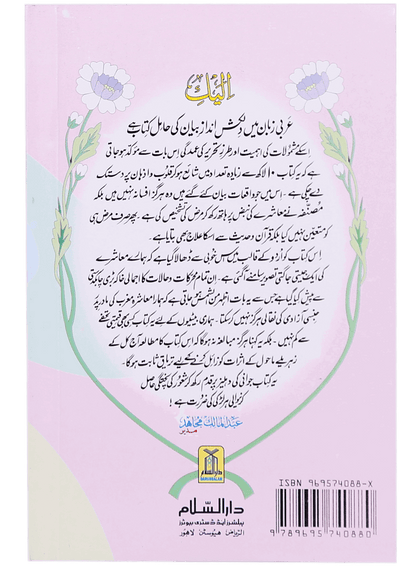 إليك
عربی زبان میں دلکش انداز بیان کی حامل کتاب ہے
اسکے مشمولات کی اہمیت اور طرز تحریر کی عمدگی اس بات سے مؤکد ہو جاتی
ہے کہ یہ کتاب ۱۰ لاکھ سے زیادہ تعداد میں شائع ہو کر قلوب و اذہان پر دستک
دے چکی ہے۔ اس میں جو واقعات بیان کئے گئے ہیں وہ ہرگز افسانہ نہیں ہیں بلکہ
مصنفہ نے معاشرے کی نبض پر ہاتھ رکھ کر مرض کی تشخیص کی ہے۔ پھر صرف مرض ہی
کو متعین نہیں کیا بلکہ قرآن و حدیث سے اسکا علاج بھی بتایا ہے۔
اس کتاب کو اردو کے قالب میں اس خوبی سے ڈھالا گیا ہے کہ ہمارے معاشرے
کی ایک جیتی جاگتی تصویر سامنے آ گئی ہے۔ ان تمام محرکات و حالات کا اجمالی خاکہ بڑی چابکدستی
سے پیش کیا گیا ہے جس سے یہ بات اظہر من الشمس ہو جاتی ہے کہ ہمارا معاشرہ مغرب کی مادر پدر
جنسی آزادی کی نقالی ہرگز نہیں کر سکتا۔ ہماری بیٹیوں کے لئے یہ کتاب کسی بھی قیمتی تحفے
سے کم نہیں۔ بلکہ یہ کہنا ہرگز مبالغہ نہ ہوگا کہ اس کتاب کا مطالعہ آج کل کے
زہریلے ماحول کے اثرات کو زائل کرنے کیلئے تریاق ثابت ہوگا۔
یہ کتاب جوانی کی دہلیز پر قدم رکھ کر شعور کی پختگی حاصل
کرنیوالی ہر لڑکی کی ضرورت ہے!
عبدالمالک مجاهد
مدیر
DARUSSALAM
دارالسلام
پبلشرز اینڈ ڈسٹری بیوٹرز
الریاض هیوسٹن لاهور
ISBN 969574088-X
9 789695 740880